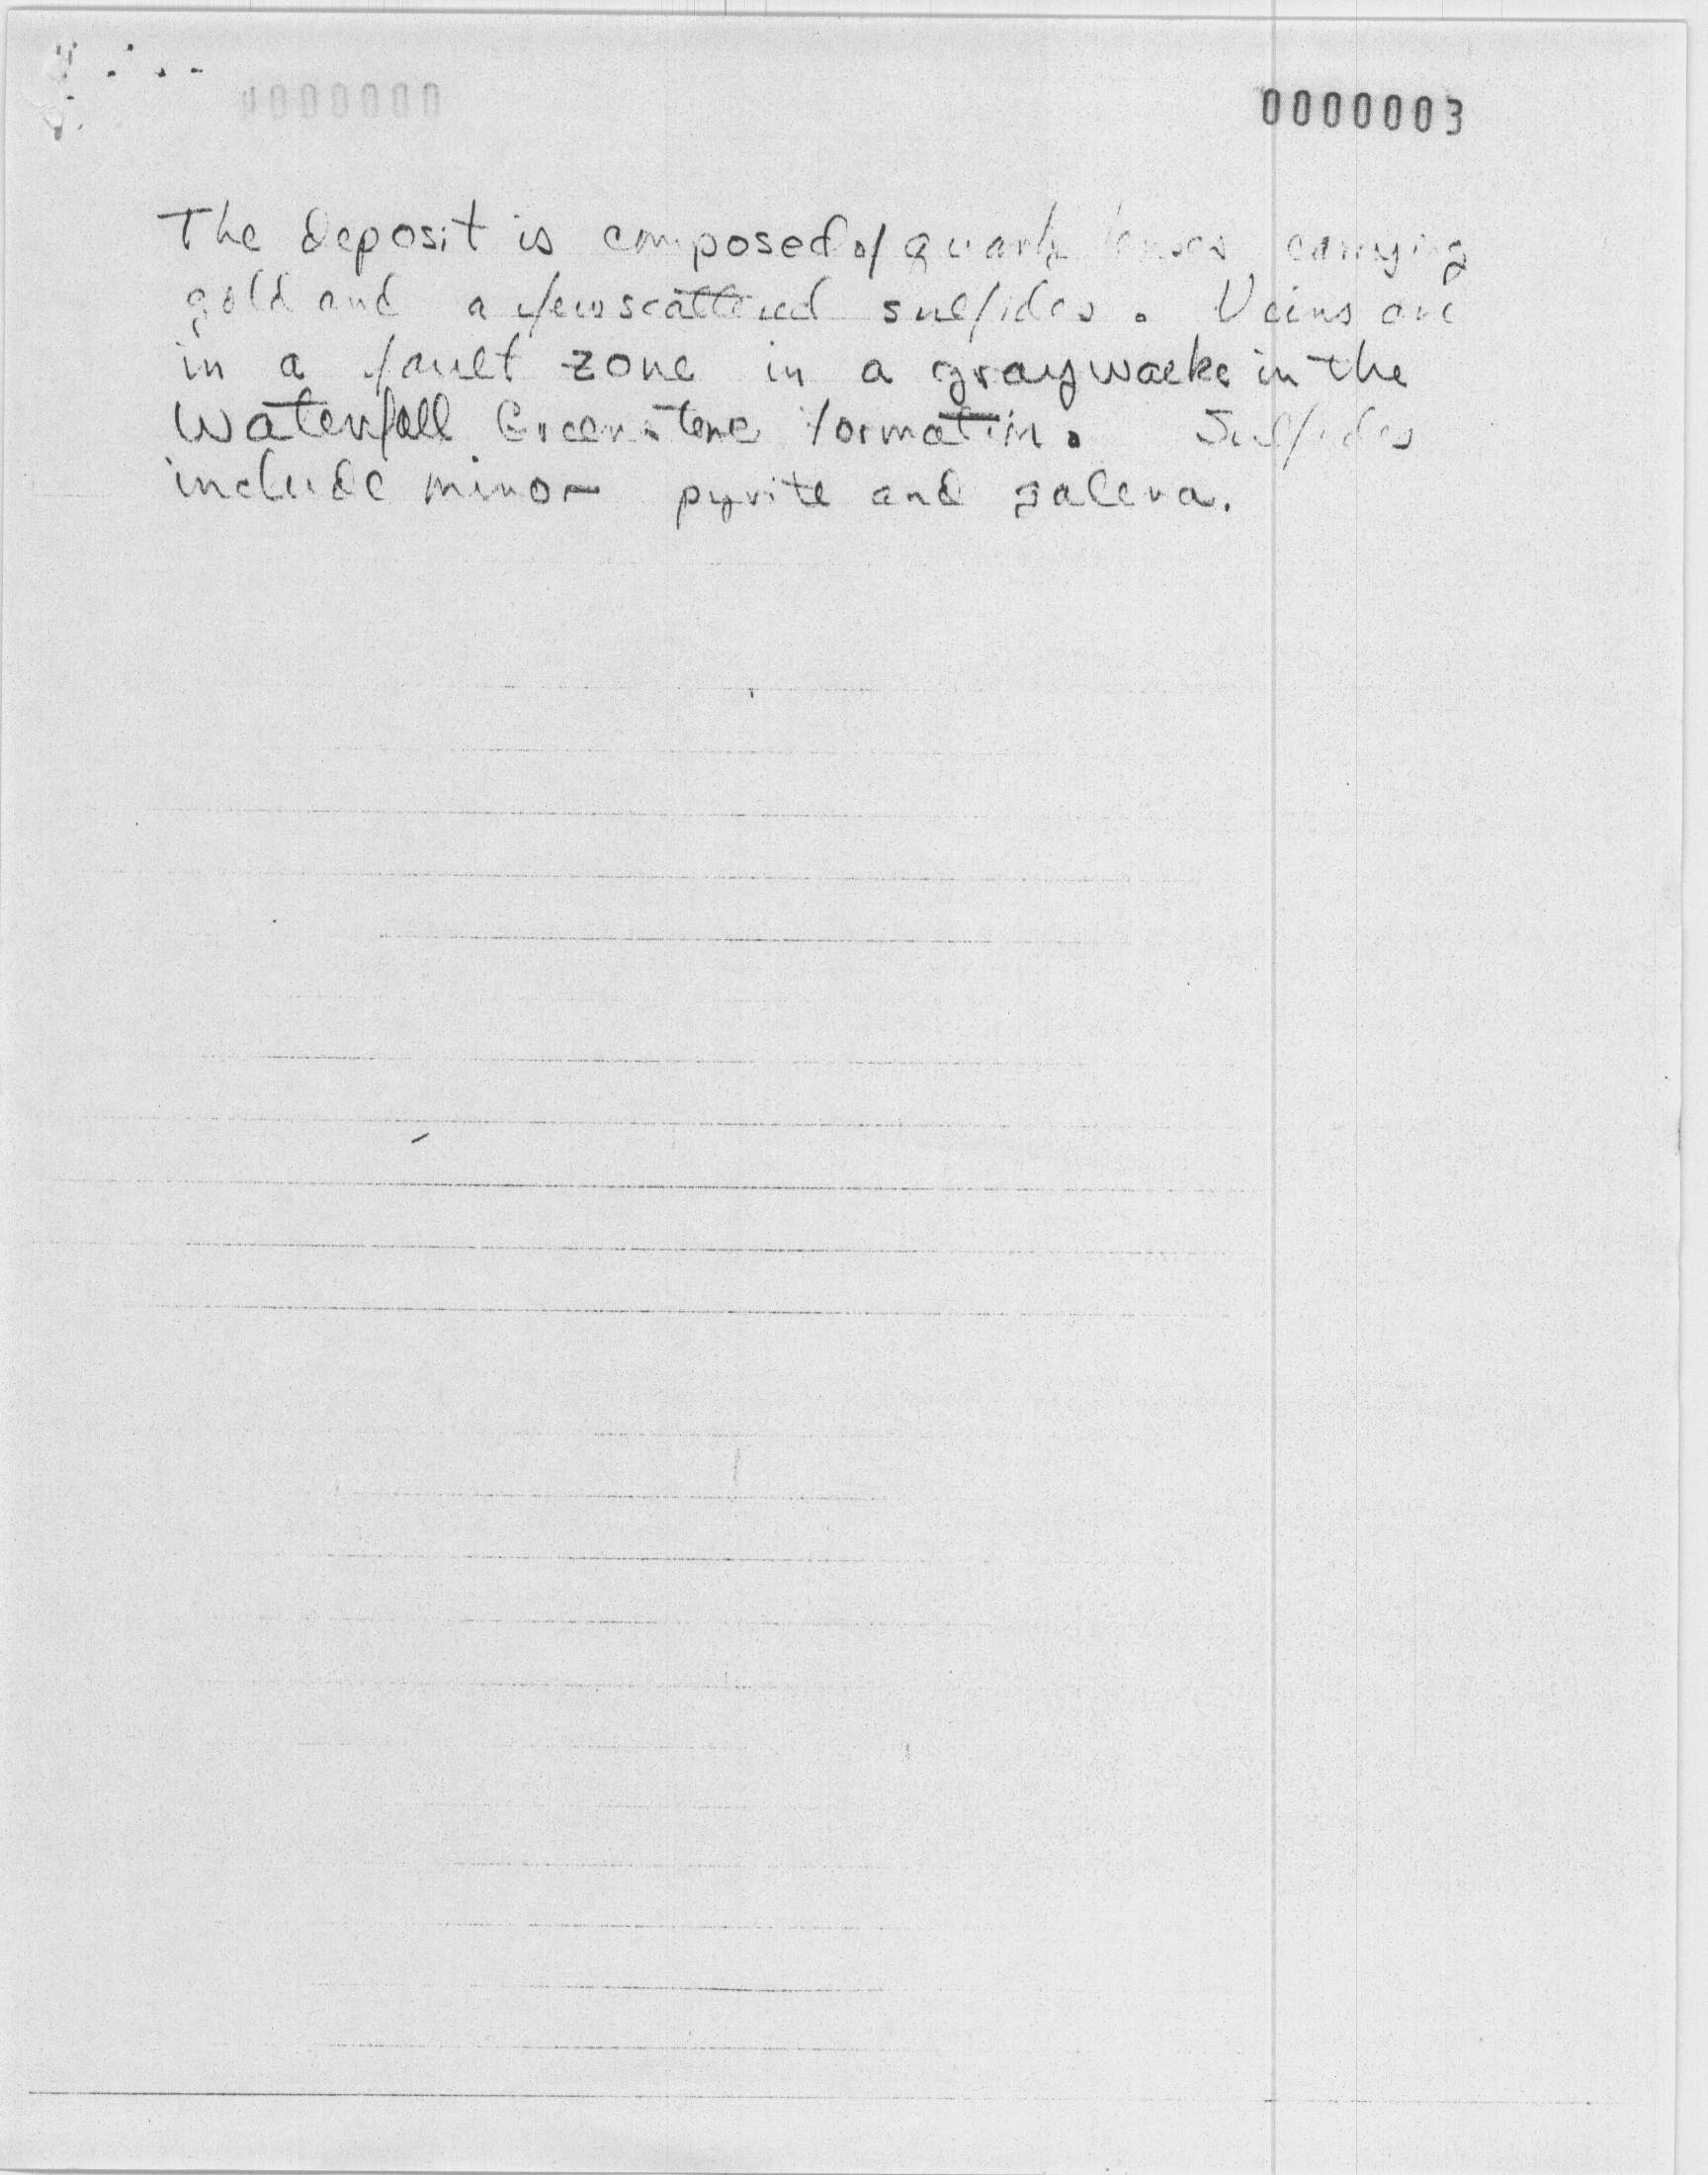 0000000 0000003
The deposit is composed of quartz lenses carrying
gold and a few scattered sulfides. Veins are
in a fault zone in a graywacke in the
Waterfall Greenstone formation. Sulfides
include minor pyrite and galena.